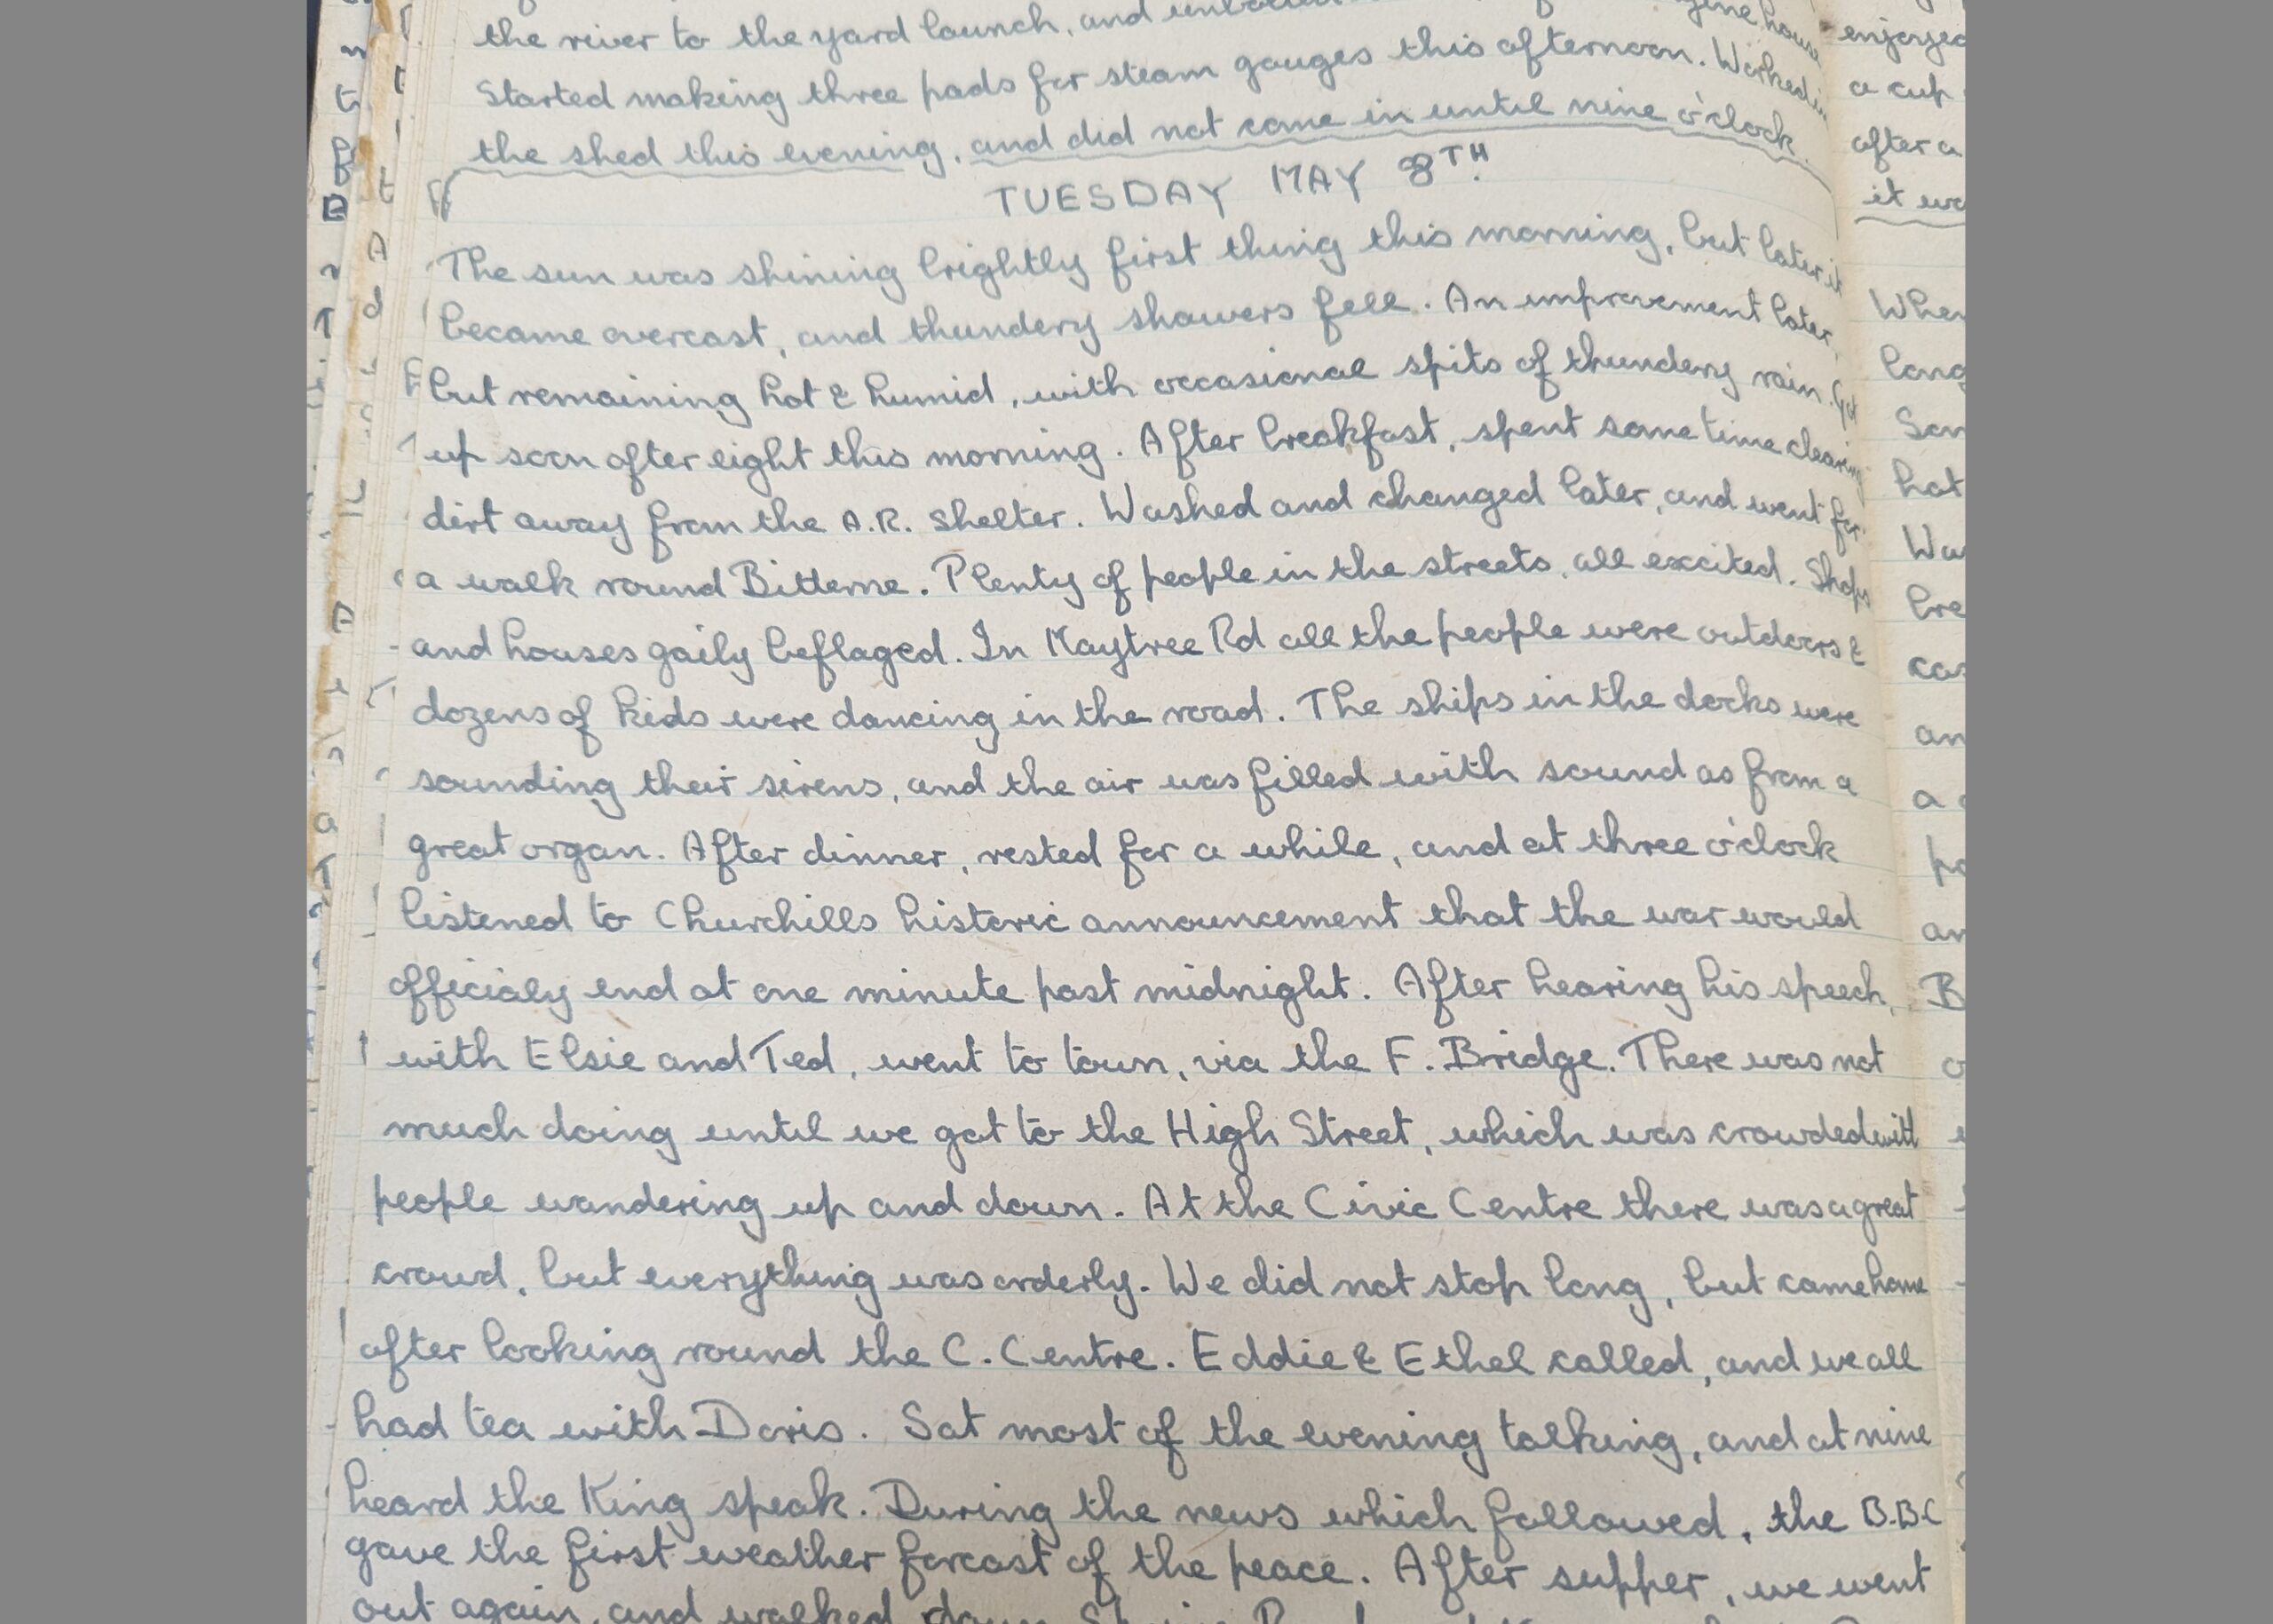 the river to the yard launch, and
Started making three pads for steam gauges this afternoon. Worked in
the shed this evening, and did not come in until nine o'clock.
TUESDAY MAY 8TH.
The sun was shining brightly first thing this morning, but later it
became overcast, and thundery showers fell. An improvement later,
but remaining hot & humid, with occasional spits of thundery rain. Got
up soon after eight this morning. After breakfast, spent some time clearing
dirt away from the A.R. shelter. Washed and changed later, and went for
a walk round Bitterne. Plenty of people in the streets, all excited. Shops
and houses gaily beflaged. In Maytree Rd all the people were outdoors &
dozens of kids were dancing in the road. The ships in the docks were
sounding their sirens, and the air was filled with sound as from a
great organ. After dinner, rested for a while, and at three o'clock
listened to Churchills historic announcement that the war would
officialy end at one minute past midnight. After hearing his speech,
with Elsie and Ted, went to town, via the F. Bridge. There was not
much doing until we got to the High Street, which was crowded with
people wandering up and down. At the Civic Centre there was a great
crowd, but everything was orderly. We did not stop long, but came home
after looking round the C. Centre. Eddie & Ethel called, and we all
had tea with Doris. Sat most of the evening talking, and at nine
heard the King speak. During the news which followed, the B.B.C
gave the first weather forcast of the peace. After supper, we went
out again, and walked down
enjoyed
a cup
after a
it
When
long
hot
a